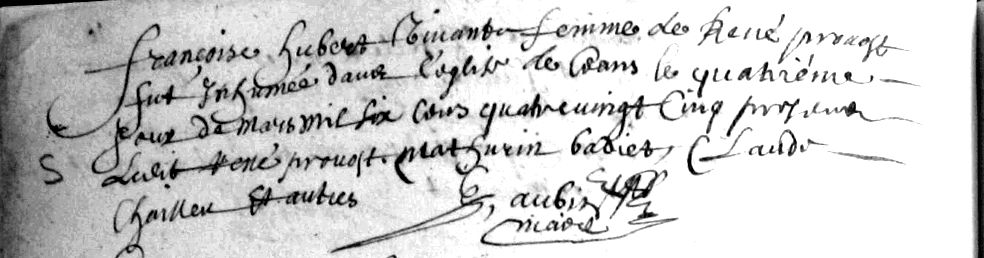 françoise hubert Vivante femme de René provost
fut Inhumée dans l'église de Ceans le quatriéme
Jour de mars mil six Cens quatrevingt Cinq presens
Ledit René provost mathurin badier, Claude
Et autres
aubin